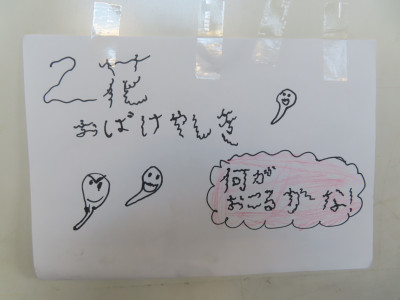 2花
おばけやしき
何が
おこるかな!